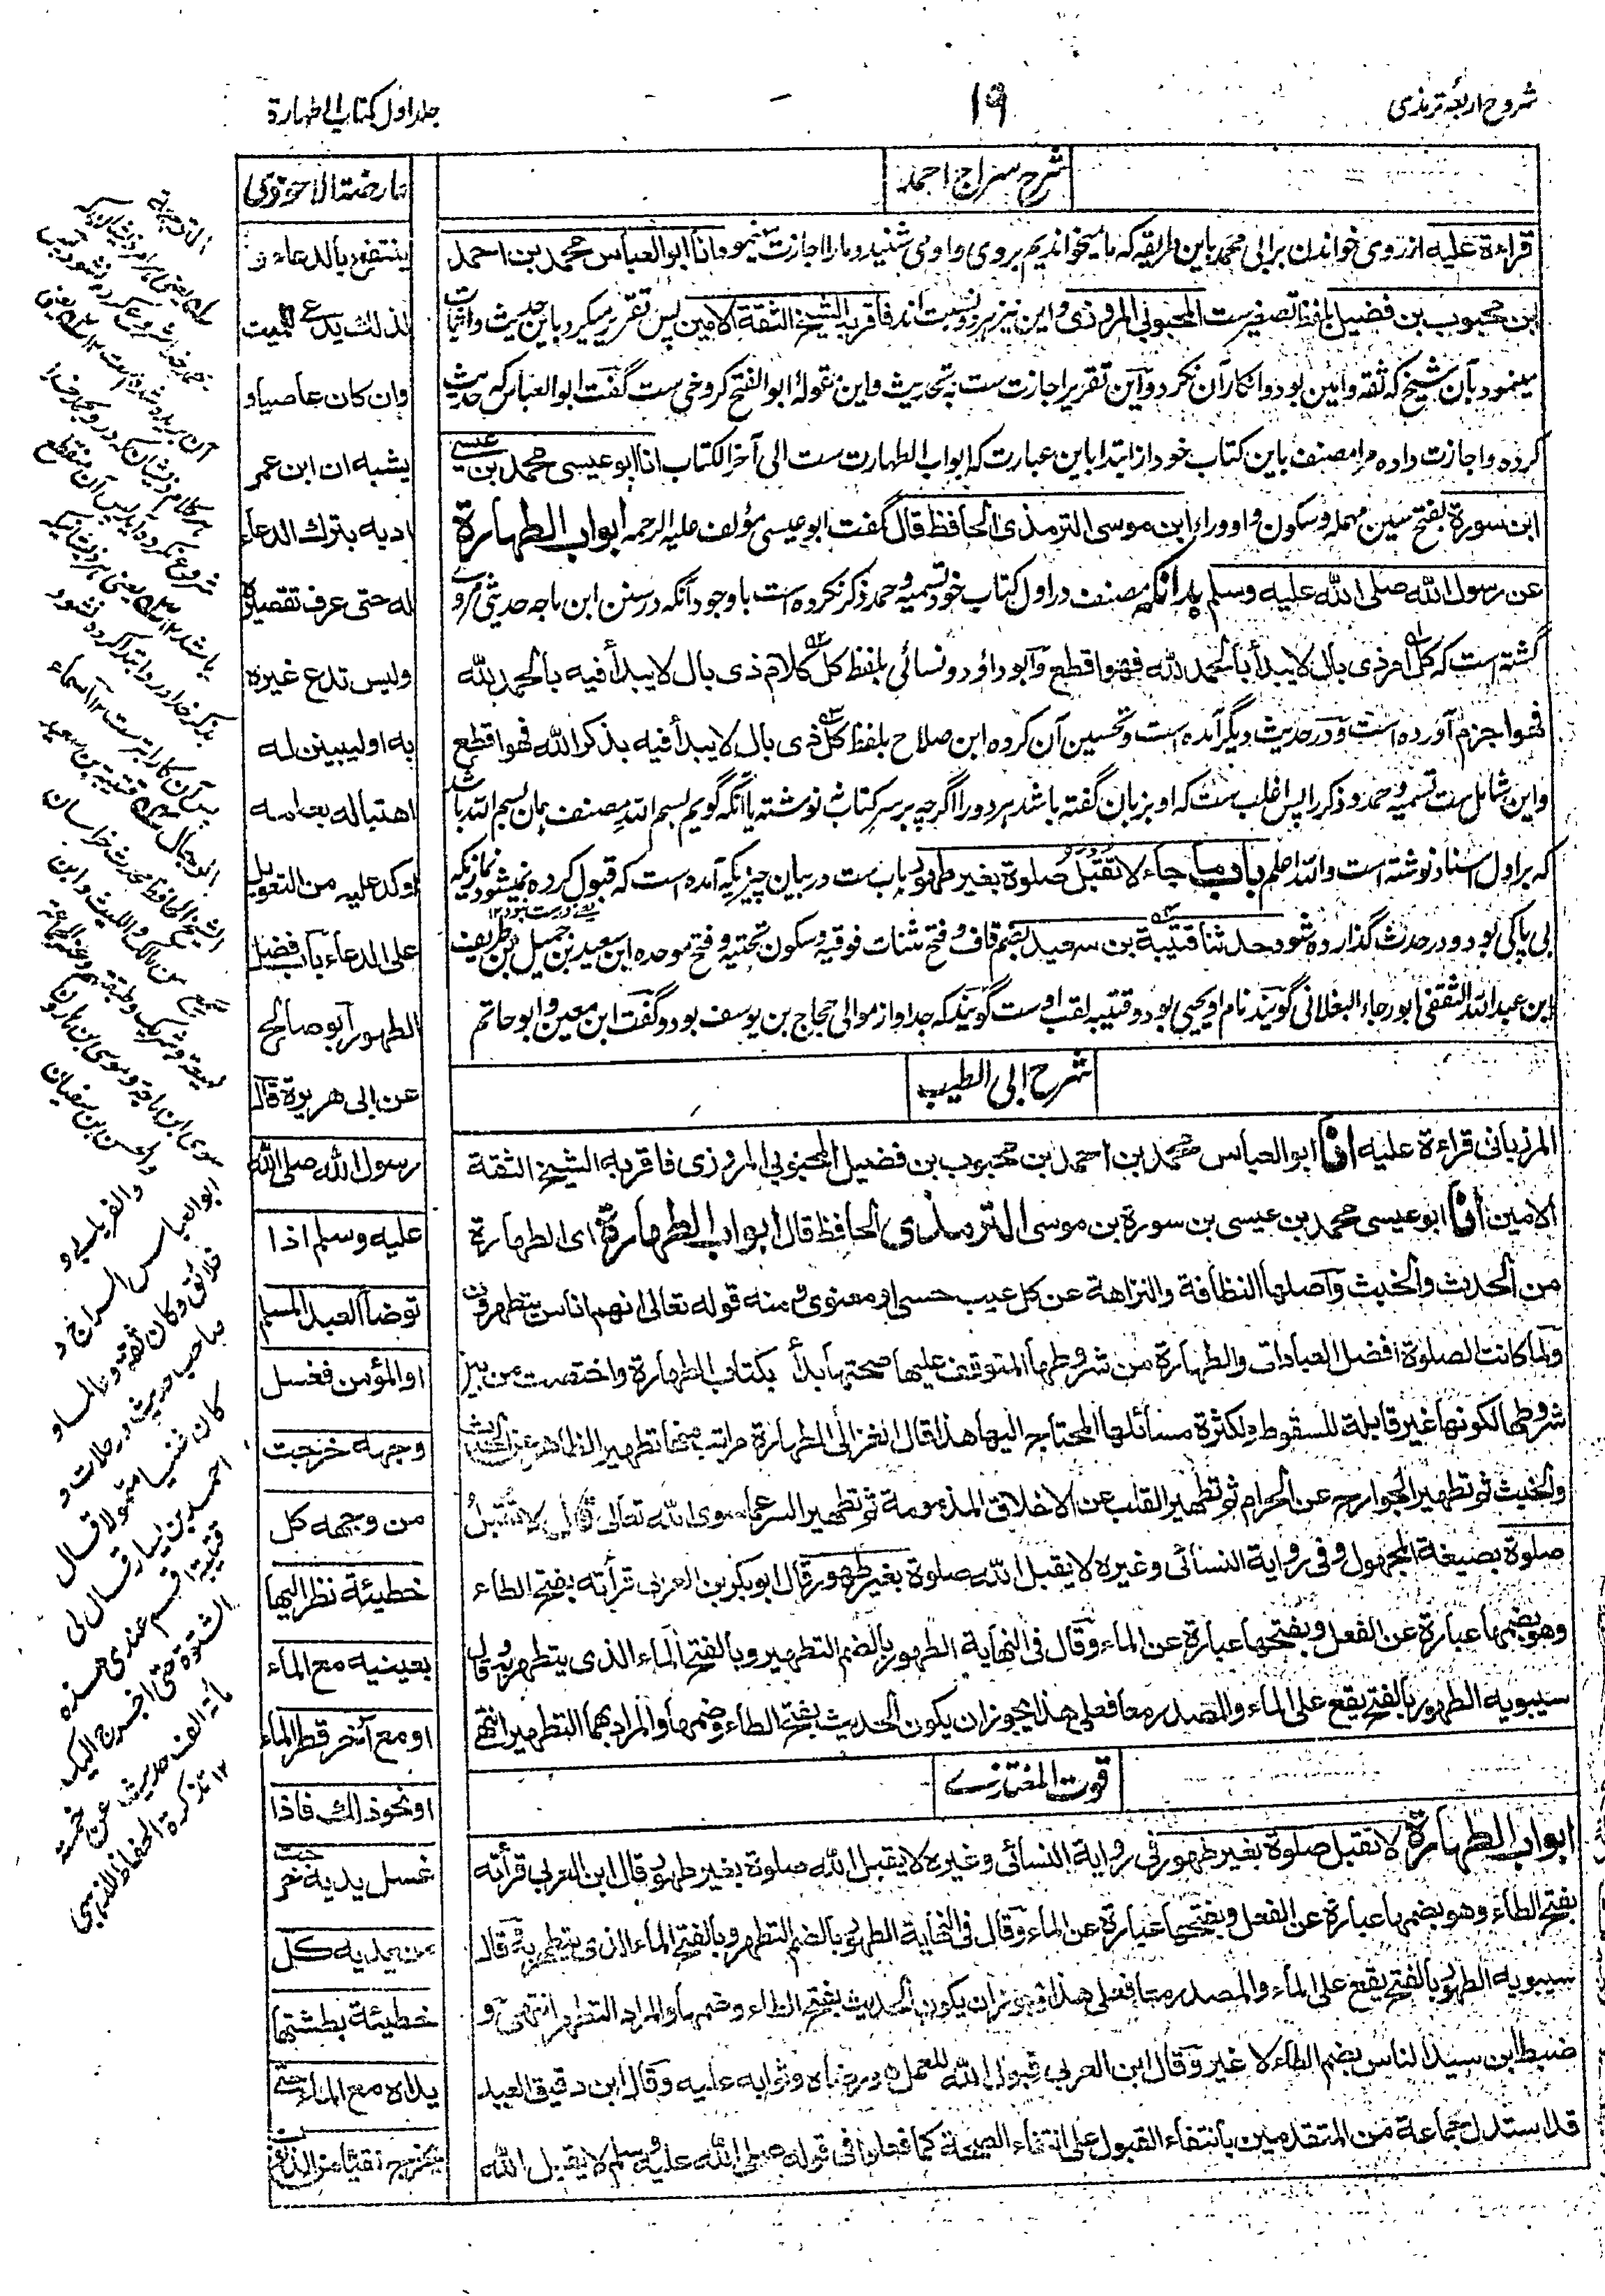 شروح اربعۂ ترمذی
۱۹
جلد اول کتاب الطہارة
شرح سراج احمد
قراءة علیه از روی خواندن بر ابی محمد باین طریقه که ما میخواندیم بروی و او می شنید و ما را اجازت می نمود انا ابو العباس محمد بن احمد
ابن محبوب بن فضیل بلفظ تصغیر ست المحبوبی المروزی و این نیز برو نسبت اند فاقر به الشیخ الثقة الامین پس تقریر میکرد باین حدیث و اثبات
مینمود بآن شیخ که ثقه و امین بود و انکار آن نکرد و این تقریر اجازت ست به تحدیث و این مقولۂ ابو الفتح کروخی ست گفت ابو العباس که حدیث
کرده و اجازت داده مرا مصنف باین کتاب خود از ابتدا باین عبارت که ابواب الطهارت ست الی آخر الکتاب انا ابو عیسی محمد بن عیسی
ابن سورة بفتح سین مهمله و سکون واو وراء ابن موسی الترمذی الحافظ قال گفت ابو عیسی مؤلف علیه الرحمه ابواب الطهارة
عن رسول الله صلی الله علیه وسلم بدانکه مصنف در اول کتاب خود تسمیه و حمد ذکر نکرده است با وجود آنکه در سنن ابن ماجه حدیثی مروی
گشته است که کل امر ذی بال لا یبدأ بالحمد لله فهو اقطع و ابو داؤد و نسائی بلفظ کل کلام ذی بال لا یبدأ فیه بالحمد لله
فهو اجزم آورده است و در حدیث دیگر آمده است و تحسین آن کرده ابن صلاح بلفظ کل ذی بال لا یبدأ فیه بذکر الله فهو اقطع
و این شامل ست تسمیه و حمد و ذکر را پس اغلب ست که او بزبان گفته باشد هر دو را اگرچه بر سر کتاب نوشته یا آنکه گویم بسم الله مصنف همان بسم الله باشد
که بر اول اسناد نوشته است والله اعلم باب ما جاء لا تقبل صلوة بغیر طهور باب ست در بیان چیزیکه آمده است که قبول کرده نمیشود نمازیکه
بی پاکی بود و در حدث گذارده شود حدثنا قتیبة بن سعید بضم قاف و فتح مثنات فوقیه و سکون تحتیه و فتح موحده ابن سعید بن جمیل بن طریف
ابن عبد الله الثقفی ابو رجاء البغلانی گویند نام او یحیی بود و قتیبه لقب اوست گویند که جد او از موالی حجاج بن یوسف بود و گفت ابن معین و ابو حاتم
شرح ابی الطیب
المرزبانی قراءة علیه انا ابو العباس محمد بن احمد بن محبوب بن فضیل المحبوبی المروزی فاقر به الشیخ الثقة
الامین انا ابو عیسی محمد بن عیسی بن سورة بن موسی الترمذی الحافظ قال ابواب الطهارة ای الطهارة
من الحدث والخبث واصلها النظافة والنزاهة عن كل عیب حسی او معنوی ومنه قوله تعالی انهم اناس یتطهرون
ولما كانت الصلوة افضل العبادات والطهارة من شروطها المتوقف علیها صحتها بدأ بكتاب الطهارة واختصت من بین
شروطها لكونها غیر قابلة للسقوط ولكثرة مسائلها المحتاج الیها هذا قال الغزالی الطهارة مراتب منها تطهیر الظاهر عن الحدث
والخبث ثم تطهیر الجوارح عن الحرام ثم تطهیر القلب عن الاخلاق المذمومة ثم تطهیر السر عما سوی الله تعالی قال لا تقبل
صلوة بصیغة المجهول وفی روایة النسائی وغیره لا یقبل الله صلوة بغیر طهور قال ابو بكر بن العربی قرأته بفتح الطاء
وهو بضمها عبارة عن الفعل وبفتحها عبارة عن الماء وقال فی النهایة الطهور بالضم التطهیر وبالفتح الماء الذی یتطهر به وقال
سیبویه الطهور بالفتح یقع علی الماء والمصدر معا فعلی هذا یجوز ان یكون الحدیث بفتح الطاء وضمها والمراد بهما التطهیر انتهی
قوت المغتذی
ابواب الطهارة لا تقبل صلوة بغیر طهور فی روایة النسائی وغیره لا یقبل الله صلوة بغیر طهور قال ابن العربی قرأته
بفتح الطاء وهو بضمها عبارة عن الفعل وبفتحها عبارة عن الماء وقال فی النهایة الطهور بالضم التطهر وبالفتح الماء الذی یتطهر به وقال
سیبویه الطهور بالفتح یقع علی الماء والمصدر معا فعلی هذا فیجوز ان یكون الحدیث بفتح الطاء وضمها والمراد التطهر انتهی و
ضبط ابن سید الناس بضم الطاء لا غیر وقال ابن العربی قبول الله للعمل هو رضاه وثوابه علیه وقال ابن دقیق العید
قد استدل جماعة من المتقدمین بانتفاء القبول علی انتفاء الصحة كما فعلوا فی قوله صلی الله علیه وسلم لا یقبل الله
عارضة الاحوذی
ینتفع بالدعاء
لذلك یدعی للمیت
وان كان عاصیا و
یشبه ان ابن عمر
ادبه بترك الدعاء
له حتی عرف تقصیره
ولیس تدع غیره
به اولیبین له
اهتباله بعامه
اوكد علیه من التعویل
علی الدعاء باب فضل
الطهور ابو صالح
عن ابی هریرة قال
رسول الله صلی الله
علیه وسلم اذا
توضأ العبد المسلم
او المؤمن فغسل
وجهه خرجت
من وجهه كل
خطیئة نظر الیها
بعینیه مع الماء
او مع آخر قطر الماء
او نحو ذلك فاذا
غسل یدیه خرجت
من یدیه كل
خطیئة بطشتها
یداه مع الماء حتی
یخرج نقیا من الذنوب
الشیخ الحافظ محدث خراسان
سمع من مالك واللیث وابن
لهیعة وشریك وطبقتهم وعنه الجماعة
سوی ابن ماجة وموسی بن هارون
والحسن بن سفیان
والفریابی و
ابو العباس السراج و
خلائق وكان ثقة وعالما و
صاحب حدیث ورحلات و
كان غنیا متمولا قال
احمد بن سیار قال لی
قتیبة اقم عندی هذه
الشتوة حتی اخرج الیك
مأئة الف حدیث عن خمسة
۱۲ تذكرة الحفاظ للذهبی